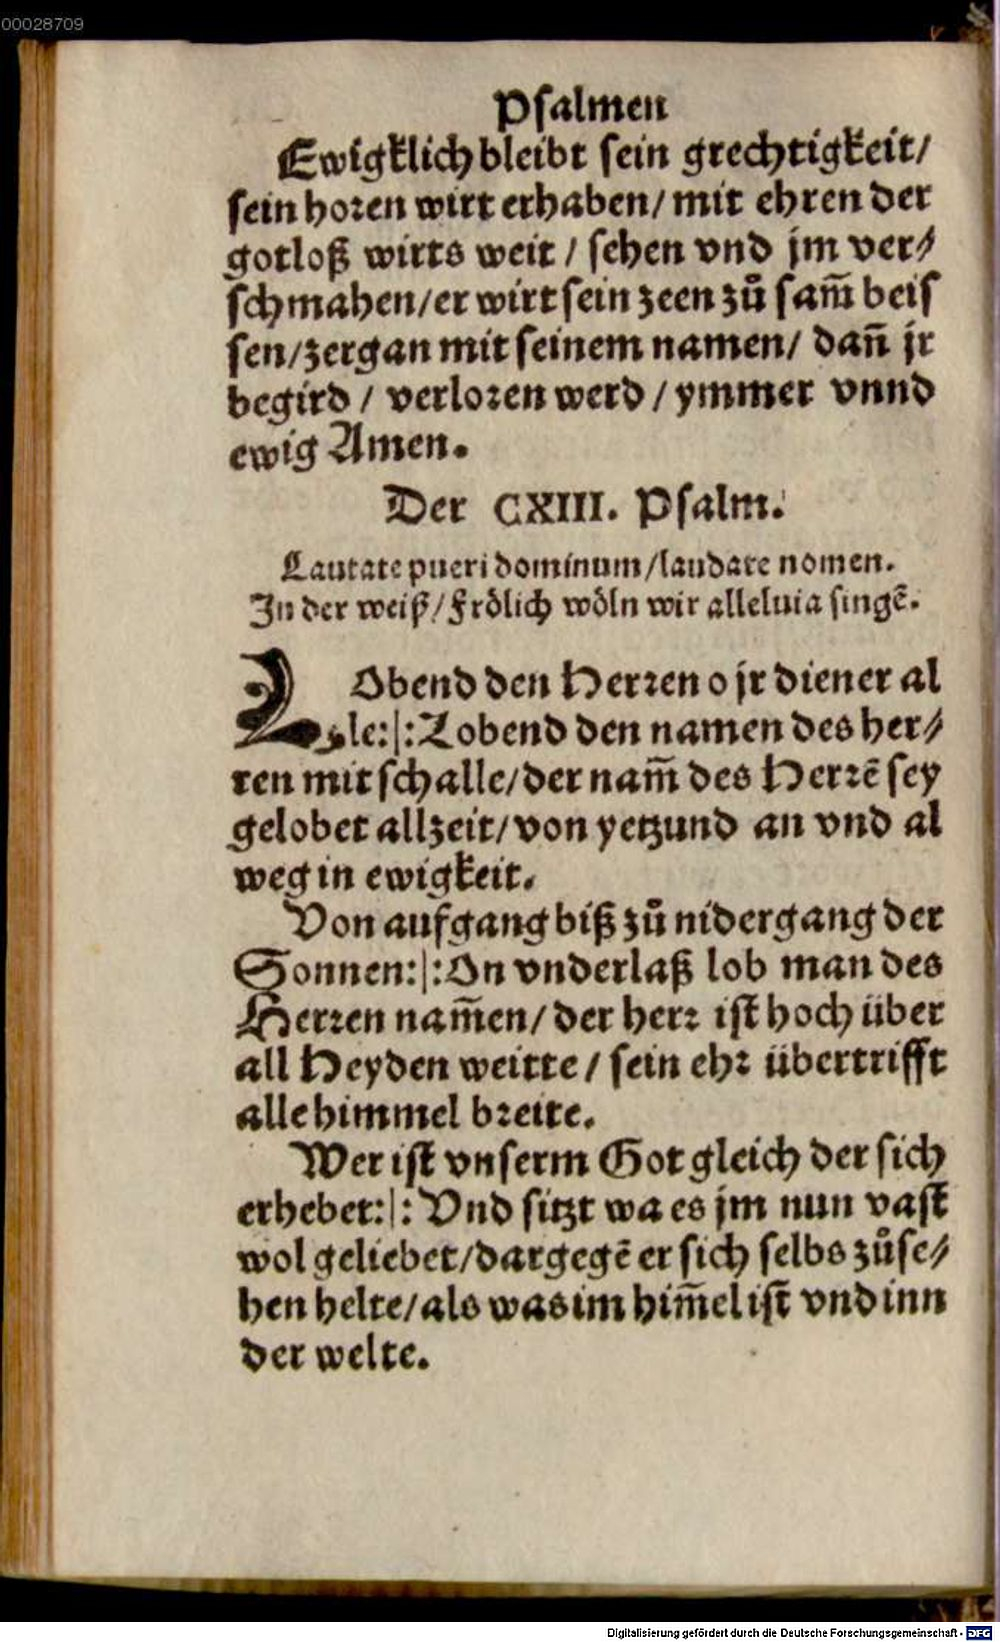 00028709
Psalmen
Ewigklich bleibt sein grechtigkeit/
sein horen wirt erhaben/ mit ehren der
gotloß wirts weit / sehen vnd jm ver⸗
schmahen/ er wirt sein zeen zů sam̄ beis
sen/ zergan mit seinem namen/ dan̄ jr
begird / verloren werd / ymmer vnnd
ewig Amen.
Der CXIII. Psalm.
Lautate pueri dominum/ laudate nomen.
In der weiß/ Frölich wöln wir alleluia singē.
LObend den Herren o jr diener al
le:|: Lobend den namen des her⸗
ren mit schalle/ der nam̄ des Herrē sey
gelobet allzeit/ von yetzund an vnd al
weg in ewigkeit.
Von aufgang biß zů nidergang der
Sonnen:|: On vnderlaß lob man des
Herren nam̄en/ der herr ist hoch über
all Heyden weitte / sein ehr übertrifft
alle himmel breite.
Wer ist vnserm Got gleich der sich
erhebet:|: Vnd sitzt wa es jm nun vast
wol geliebet/ dargegē er sich selbs zůse⸗
hen helte/ als was im him̄el ist vnd inn
der welte.
Digitalisierung gefördert durch die Deutsche Forschungsgemeinschaft - DFG